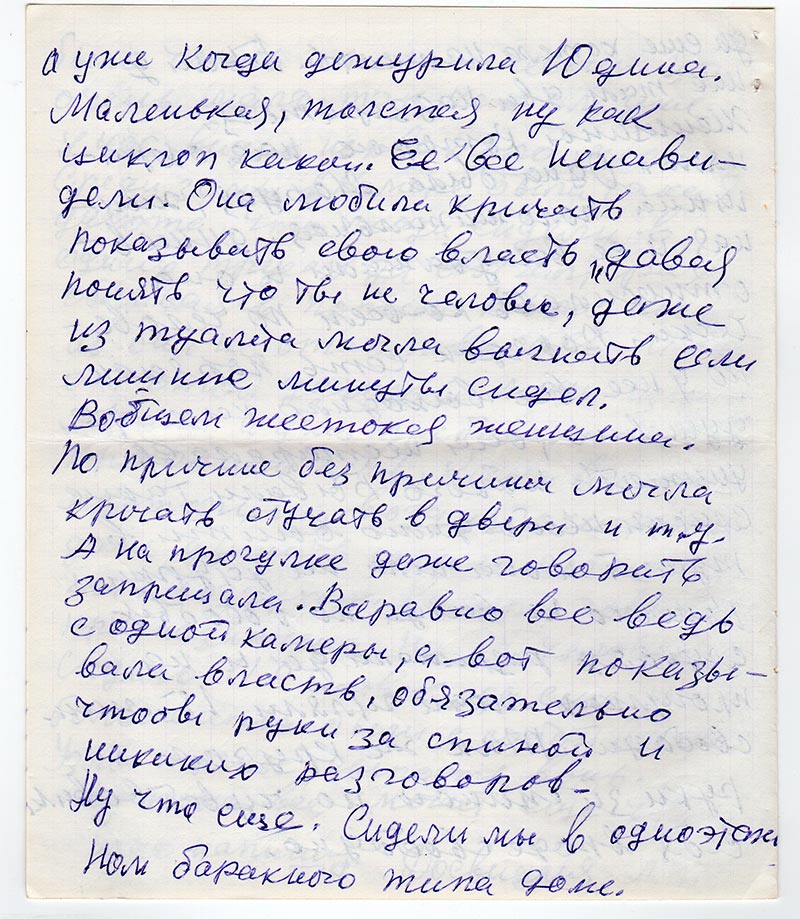 а уже когда дежурила Юдина.
Маленькая, толстая ну как
циклоп какой. Её все ненави-
дели. Она любила кричать
показывать свою власть, давая
понять что ты не человек, даже
из туалета могла выгнать если
лишние минуты сидел.
Вобщем жестокая женщина.
По причине без причины могла
кричать стучать в двери и т.у.
А на прогулке даже говорить
запрещали. Всеравно все ведь
с одной камеры, а вот показы-
вали власть, обязательно
чтобы руки за спиной и
никаких разговоров-
Ну что еще. Сидели мы в одноэтаж
ном баракного типа доме.